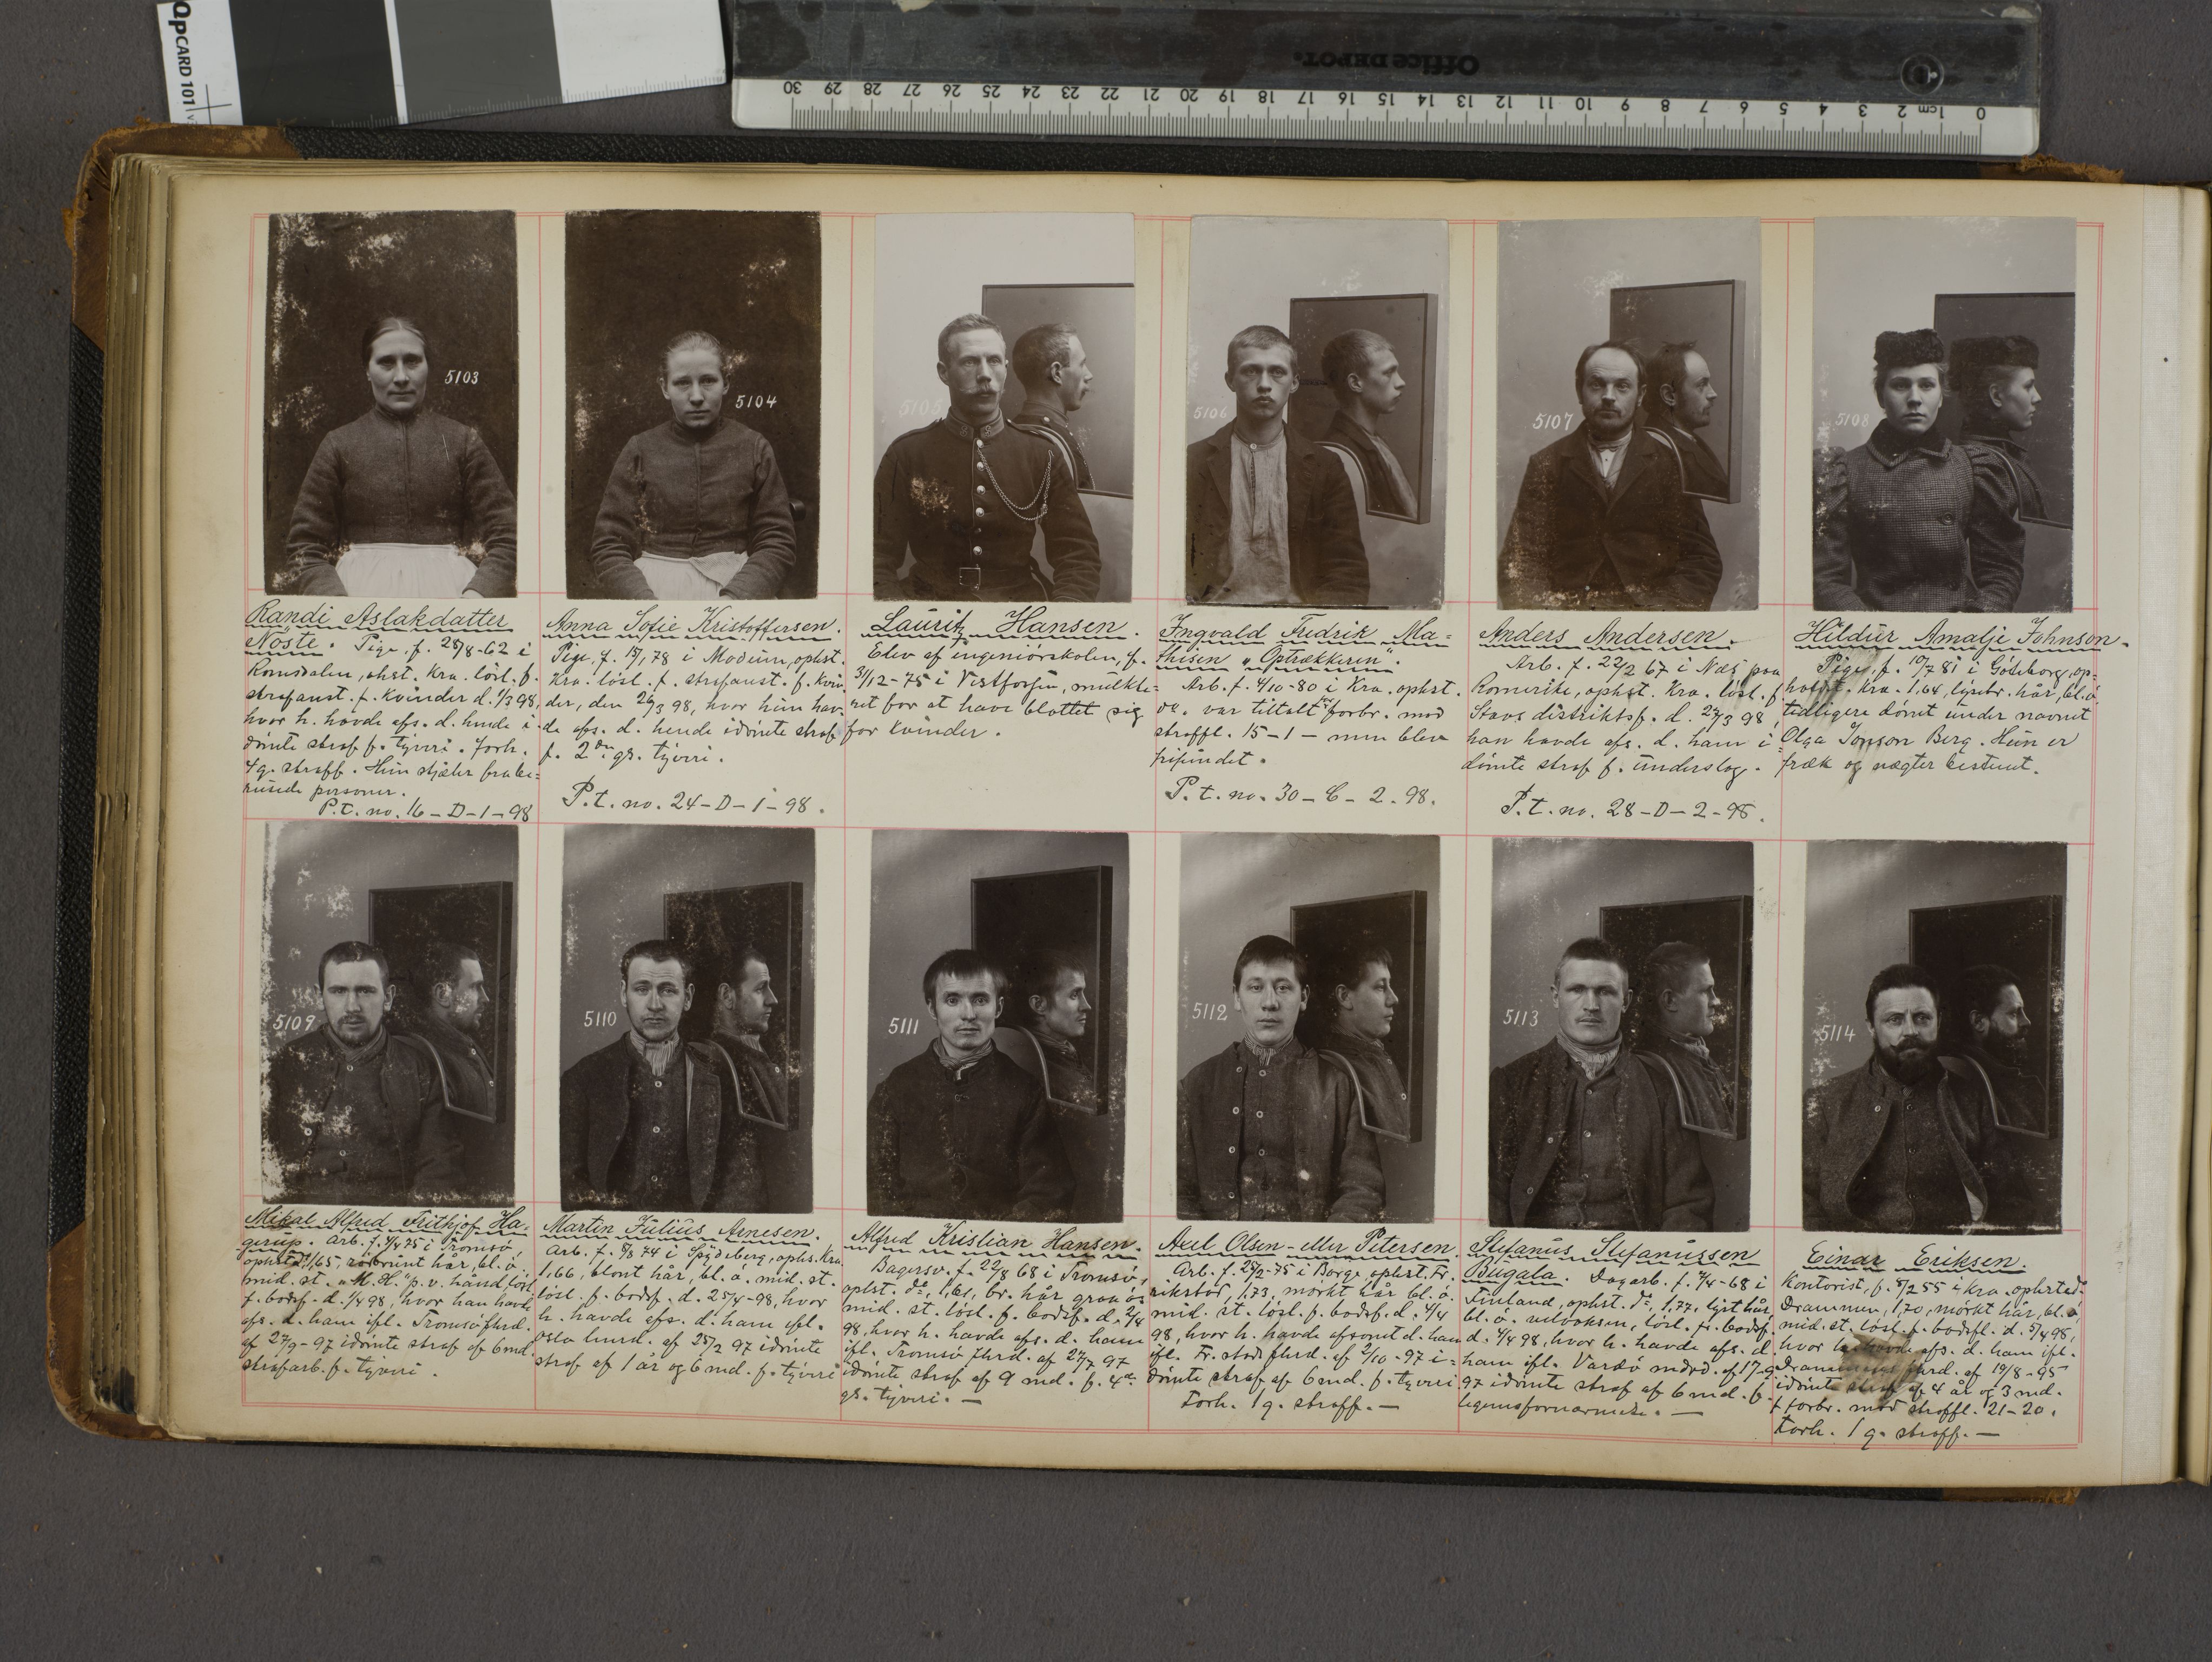 OpCARD 101
Office DEPOT.
30 29 28 27 26 25 24 23 22 21 20 19 18 17 16 15 14 13 12 11 10 9 8 7 6 5 4 3 2 1cm 0
5103
5104
5105
5106
5107
5108
Randi Aslakdatter
Nöste. Pige, f. 28/8-62 i
Romsdalen, ohst. Kra. lösl. f.
strafanst. f. kvinder d. 1/3 98,
hvor h. havde afs. d. hende i-
dömte straf f. tyveri. Forh.
4 g. straff. Hun stjæler fra be=
rusede personer.
P.t. no. 16-D-1-98
Anna Sofie Kristoffersen.
Pige, f. 15/1 78 i Modum, ophst.
Kra. lösl. f. strafanst. f. kvin-
der, den 26/3 98, hvor hun hav-
de afs. d. hende idömte straf
f. 2den gs. tyveri.
P.t. no. 24-D-1-98.
Lauritz Hansen.
Elev af ingeniörskolen, f.
3/12-75 i Vestfossen, mulkte=
ret for at have blottet sig
for kvinder.
Ingvald Fredrik Ma=
thisen "Optrækkeren".
Arb. f. 4/10-80 i Kra. ophst.
do. var tiltalt f. forbr. mod
straffl. 15-1- men blev
frifundet.
P.t. no. 30-C-2.98.
Anders Andersen.
Arb. f. 22/2 67 i Næs paa
Romerike, ophst. Kra. lösl. f.
Stavs distriktsf. d. 24/3 98,
han havde afs. d. ham i=
dömte straf f. underslag.
P.t. no. 28-D-2-98.
Hildur Amalje Johnson.
Pige, f. 10/7 81 i Göteborg, op-
holdst. Kra. 1,64, lysebr. hår, bl. ö.
tidligere dömt under navnet
Olga Jonson Berg. Hun er
fræk og nægter bestemt.
5109
5110
5111
5112
5113
5114
Mikal Alfred Frithjof Ha-
gerup. Arb. f. 4/4 75 i Tromsö,
ophst do 1,65, rödbrunt hår, bl. ö.
mid. st. "M.H." p. v. hånd, lösl.
f. bodsf. d. 1/4 98, hvor han havde
afs. d. ham ifl. Tromsö fhrd.
af 27/9-97 idömte straf af 6 md.
strafarb. f. tyveri.
Martin Julius Arnesen.
Arb. f. 8/8 74 i Spydeberg, ophs. Kra.
1,66, blont hår, bl. ö. mid. st.
lösl. f. bodsf. d. 25/4-98, hvor
h. havde afs. d. ham ifl.
Oslo hmrd. af 25/2 97 idömte
straf af 1 år og 6 md. f. tyveri
Alfred Kristian Hansen.
Bagersv. f. 22/8 68 i Tromsö,
ophst. do, 1,61, br. hår graa ö.
mid. st. lösl. f. bodsf. d. 2/4
98, hvor h. havde afs. d. ham
ifl. Tromsö fhrd. af 27/7 97
idömte straf af 9 md. f. 4de
gs. tyveri. —
Axel Olsen- eller Petersen.
Arb. f. 25/2-75 i Borge, ophst. Fr.
rikstad, 1,73, mörkt hår bl. ö.
mid. st. lösl. f. bodsf. d. 4/4
98, hvor h. havde afsonet d. ham
ifl. Fr. stads fhrd. af 2/10-97 i=
dömte straf af 6 md. f. tyveri
Forh. 1 g. straff. —
Stefanus Stefanussen
Bugala. Dagarb. f. 7/4-68 i
Finland, ophst. do, 1,77, lyst hår
bl. ö. udvoksen, lösl. fr. bodsf.
d. 4/4 98, hvor h. havde afs. d.
ham ifl. Vardö mdrd. af 17-9
97 idömte straf af 6 md. f.
legemsfornærmelse. —
Einar Eriksen.
Kontorist, f. 5/2 55 i Kra. ophsted
Drammen, 1,70, mörkt hår, bl. ö,
mid. st. lösl. f. bodsfl. d. 5/4 98,
hvor havde afs. d. ham ifl.
Drammens fhrd. af 19/8-95
idömte straf af 4 år og 3 md.
f. forbr. mod straffl. 21-20.
Forh. 1 g. straff. —